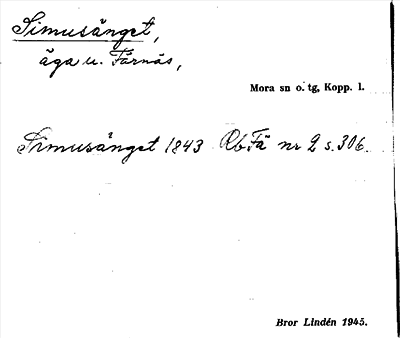 Simusänget,
äga u. Färnäs,
Mora sn o. tg, Kopp. l.
Simusänget 1843 Rb Fä nr 2 s. 306.
Bror Lindén 1945.